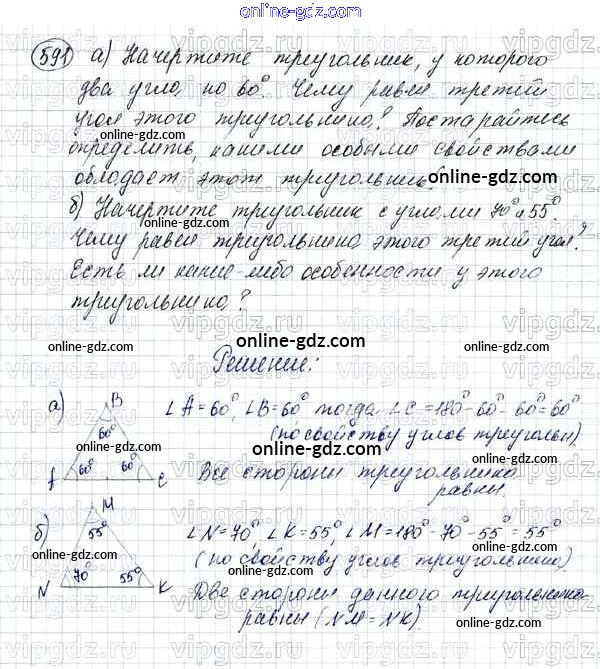 online-gdz.com
591 а) Начертите треугольник, у которого
два угла по 60°. Чему равен третий
угол этого треугольника? Постарайтесь
online-gdz.com
определить, какими особыми свойствами
обладает этот треугольник.
online-gdz.com
б) Начертите треугольник с углами 70° и 55°.
Чему равен треугольника этого третий угол?
Есть ли какие-либо особенности у этого
треугольника?
online-gdz.com
online-gdz.com
Решение:
online-gdz.com
а) B ∠A=60°, ∠B=60° тогда ∠C=180°-60°-60°=60°
60° (по свойству углов треугольн)
online-gdz.com
A 60° 60° C Все стороны треугольника
равны.
online-gdz.com
б) M ∠N=70°, ∠K=55°, ∠M=180°-70°-55°=55°
online-gdz.com
55° (по свойству углов треугольника)
online-gdz.com
N 70° 55° K Две стороны данного треугольника
равны (NM=NK).
online-gdz.com
online-gdz.com
vipgdz.com